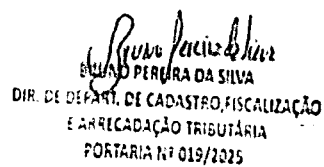 Bruno Pereira da Silva
BRUNO PEREIRA DA SILVA
DIR. DE DEPART. DE CADASTRO,FISCALIZAÇÃO
E ARRECADAÇÃO TRIBUTÁRIA
PORTARIA Nº 019/2025